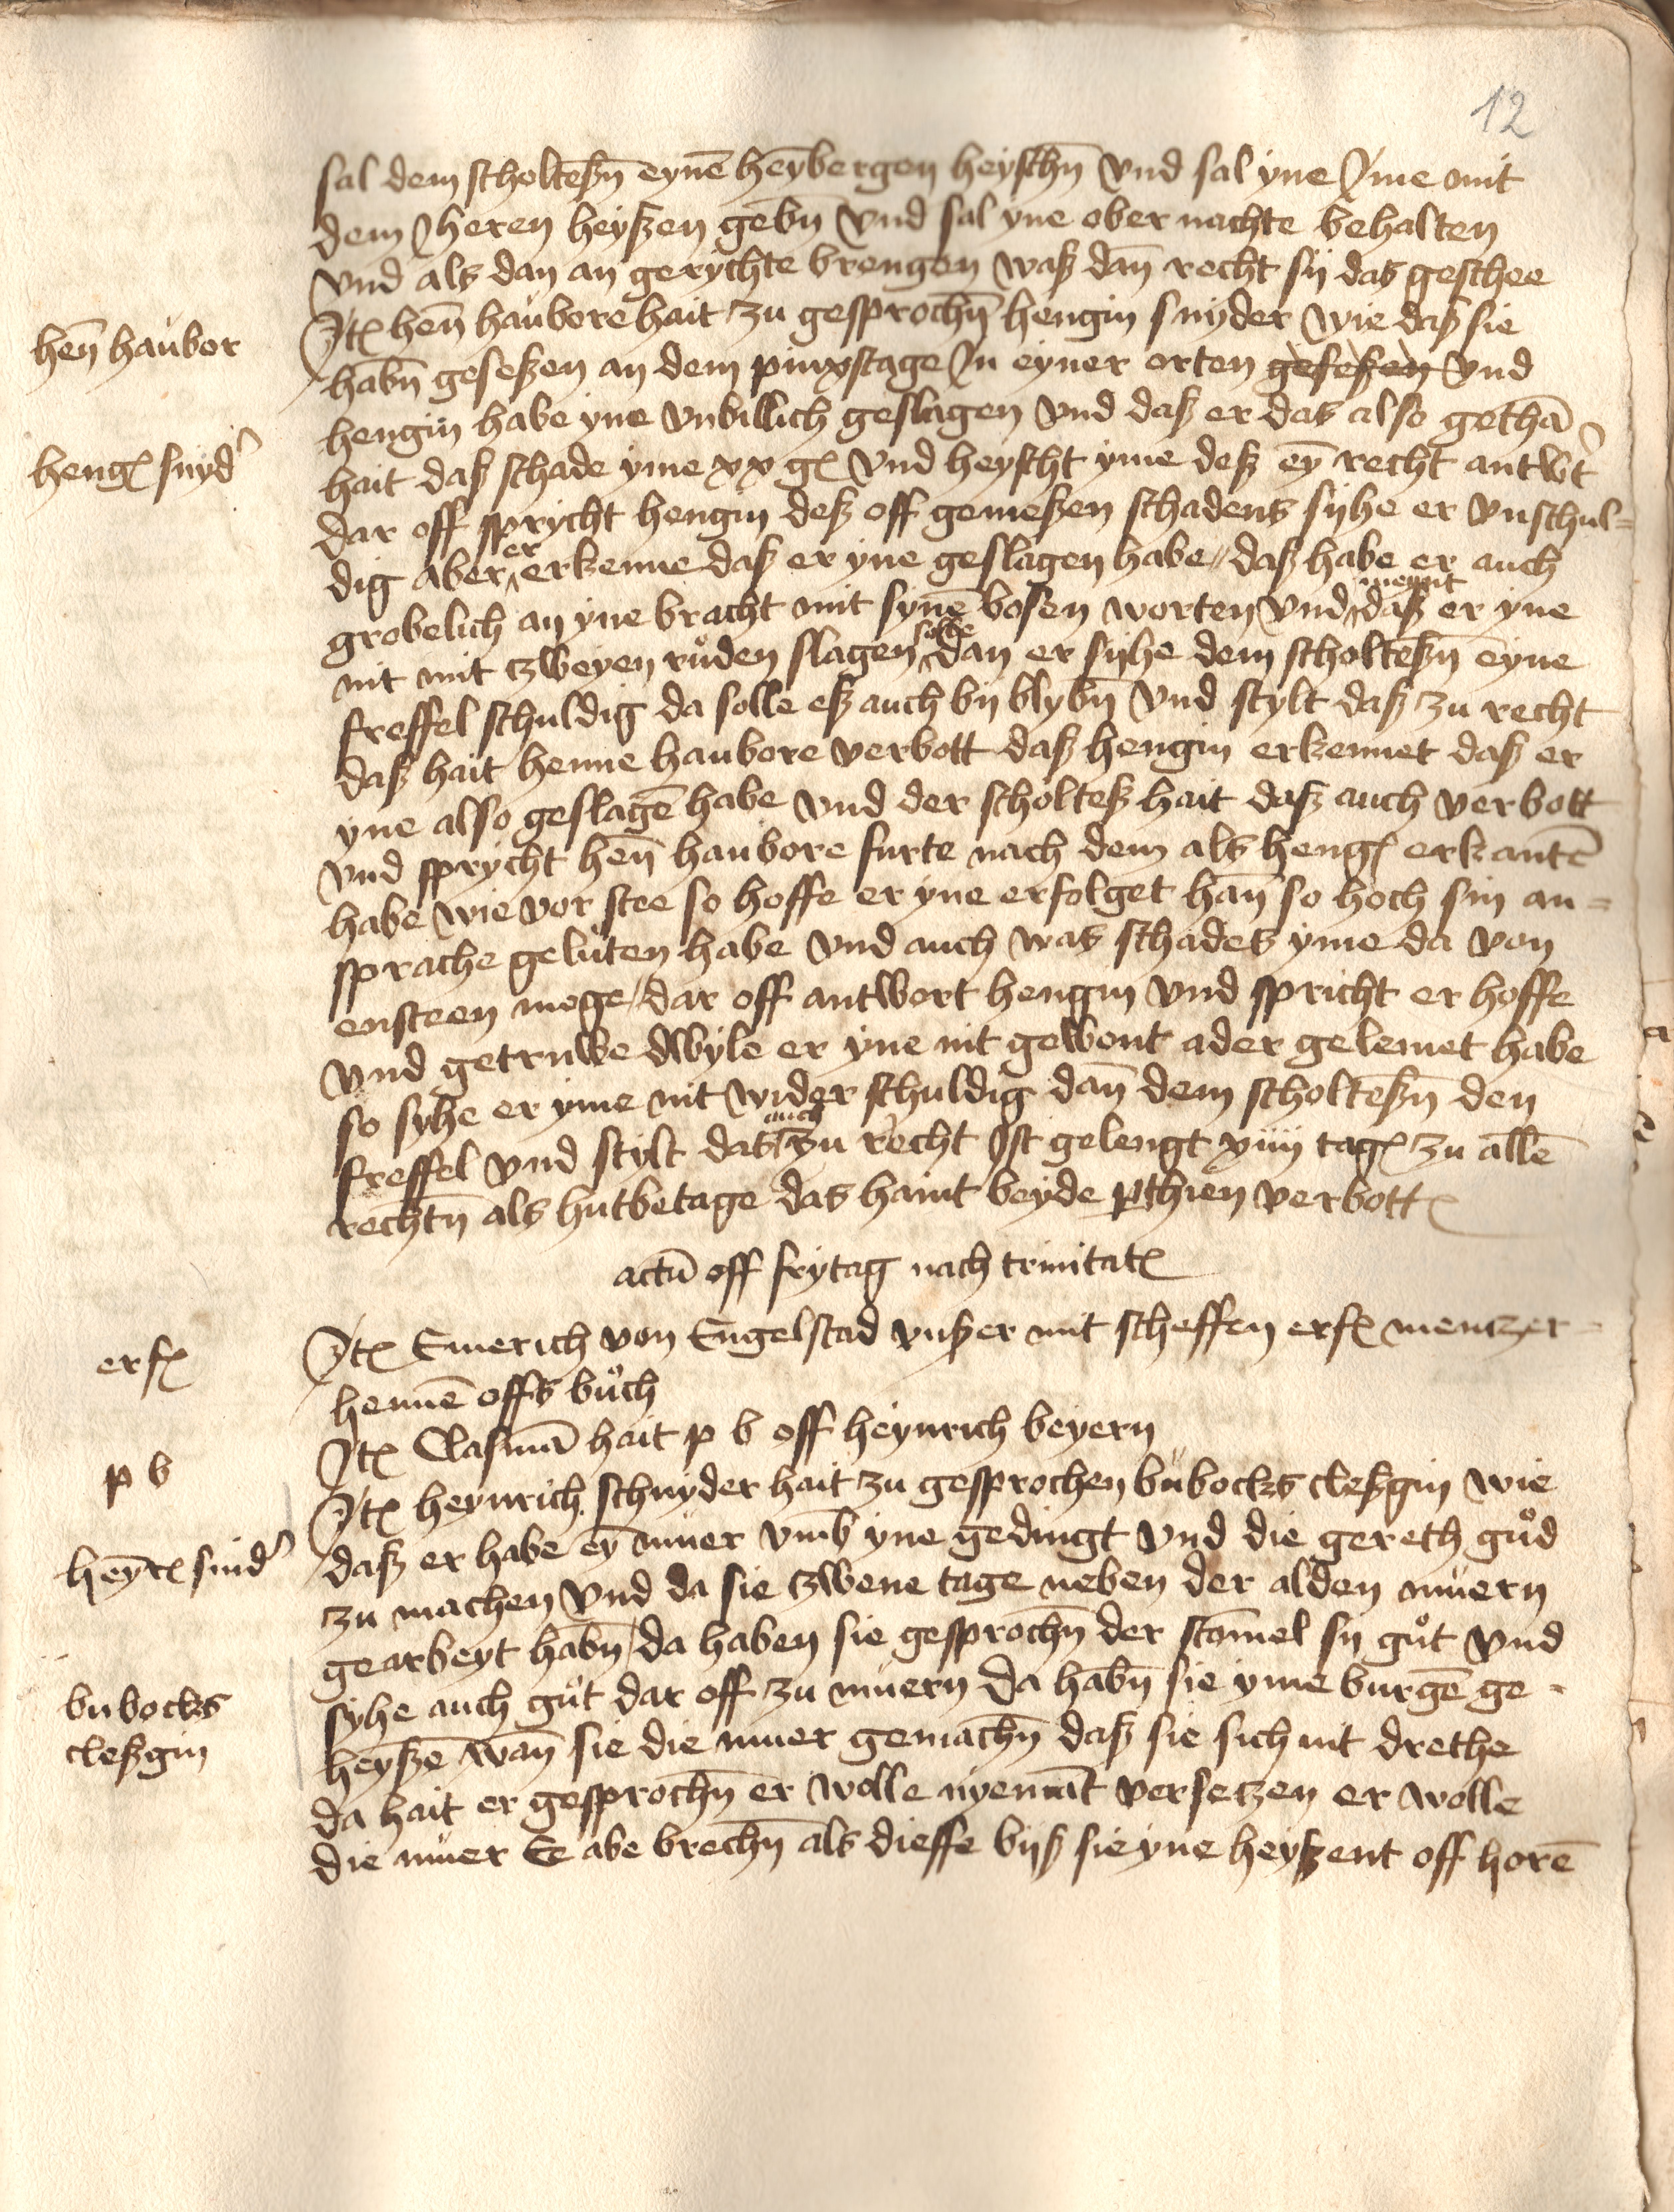 12
sal dem scholteßn̄ eynē heȳbergen heyschn̄ vnd sal yne Jme mit
dem Jheren heyßen gebn̄ vnd sal yne ober nachte behalten
vnd als dan an gerychte brengen waß dan̄ recht sij das geschee
hen̄ haubor
Jtꝭ hen̄ haubore hait zu gesprochn̄ hengin snyder wie daß sie
habn̄ geseßen an dem pinxstage Jn eyner orten geseßen vnd
hengin habe yne vnbillich geslagen vnd daß er das also gethā
hengꝭ snyd'
hait daß schade yme xx gꝭ vnd heyscht yme deß eȳ recht antw't
dar off sprycht hengin deß off gemeßen schadens sijhe er vnschul=
dig aber er erkenne daß er yne geslagen habe // daß habe er auch
grobelich an yne bracht mit synē bosen worten vnd meynt daß er yne
nit mit zweyen růden slagen solde dan er sijhe dem scholteßn̄ eyne
freffel schuldig da solle eß auch bij blybn̄ vnd stylt daß zu recht
daß hait henne haubore verbott daß hengin erkennet daß er
yne also geslagē habe vnd der scholteß hait daß auch verbott
vnd sprycht hen̄ haubore furte nach dem als hengꝭ erkantē
habe wie vor stee so hoffe er yne erfolget han̄ so hoch sin an=
sprache geluten habe vnd auch was schadets yme da von
ensteen moge / dar off antwort hengin vnd spricht er hoffe
vnd getruwe dwyle er yne nit gewont ader gelemet habe
so syhe er yme nit wider schuldig dan̄ dem scholteßn̄ den
freffel vnd stylt das auch zu recht Jst gelengt xiiij tagꝭ zu allē
rechtn̄ als hutbetage das haint beyde ꝑthien verbottꝭ
actū off frytag nach trinitatꝭ
erfꝭ
Jtꝭ Emerich von Engelstad vnßer mit scheffen erfꝭ mentzer=
hennē offs bůch
p b
Jtꝭ Clasmā hait p b off heynrich beyern
heȳrꝭ snid'
Jtꝭ heynrich schnyder hait zu gesprochen bubocks cleßgin wie
daß er habe eȳ muer vmb yne gedingt vnd die gereth gůd
zu machen vnd da sie zwene tage neben der alden muern
gearbeyt habn̄ / da haben sie gesprochn̄ der stōmel sij gůt vnd
bubocks
cleßgin
syhe auch gůt dar off zu muern da habn̄ sie yme burgē ge=
heyßē wan̄ sie die muer gemachn̄ daß sie sich nit drethe
da hait er gesprochn̄ er wolle nyemāt versetzen er wolle
die muer Ee abe brechn̄ als dieffe bijß sie yne heyßent off horē